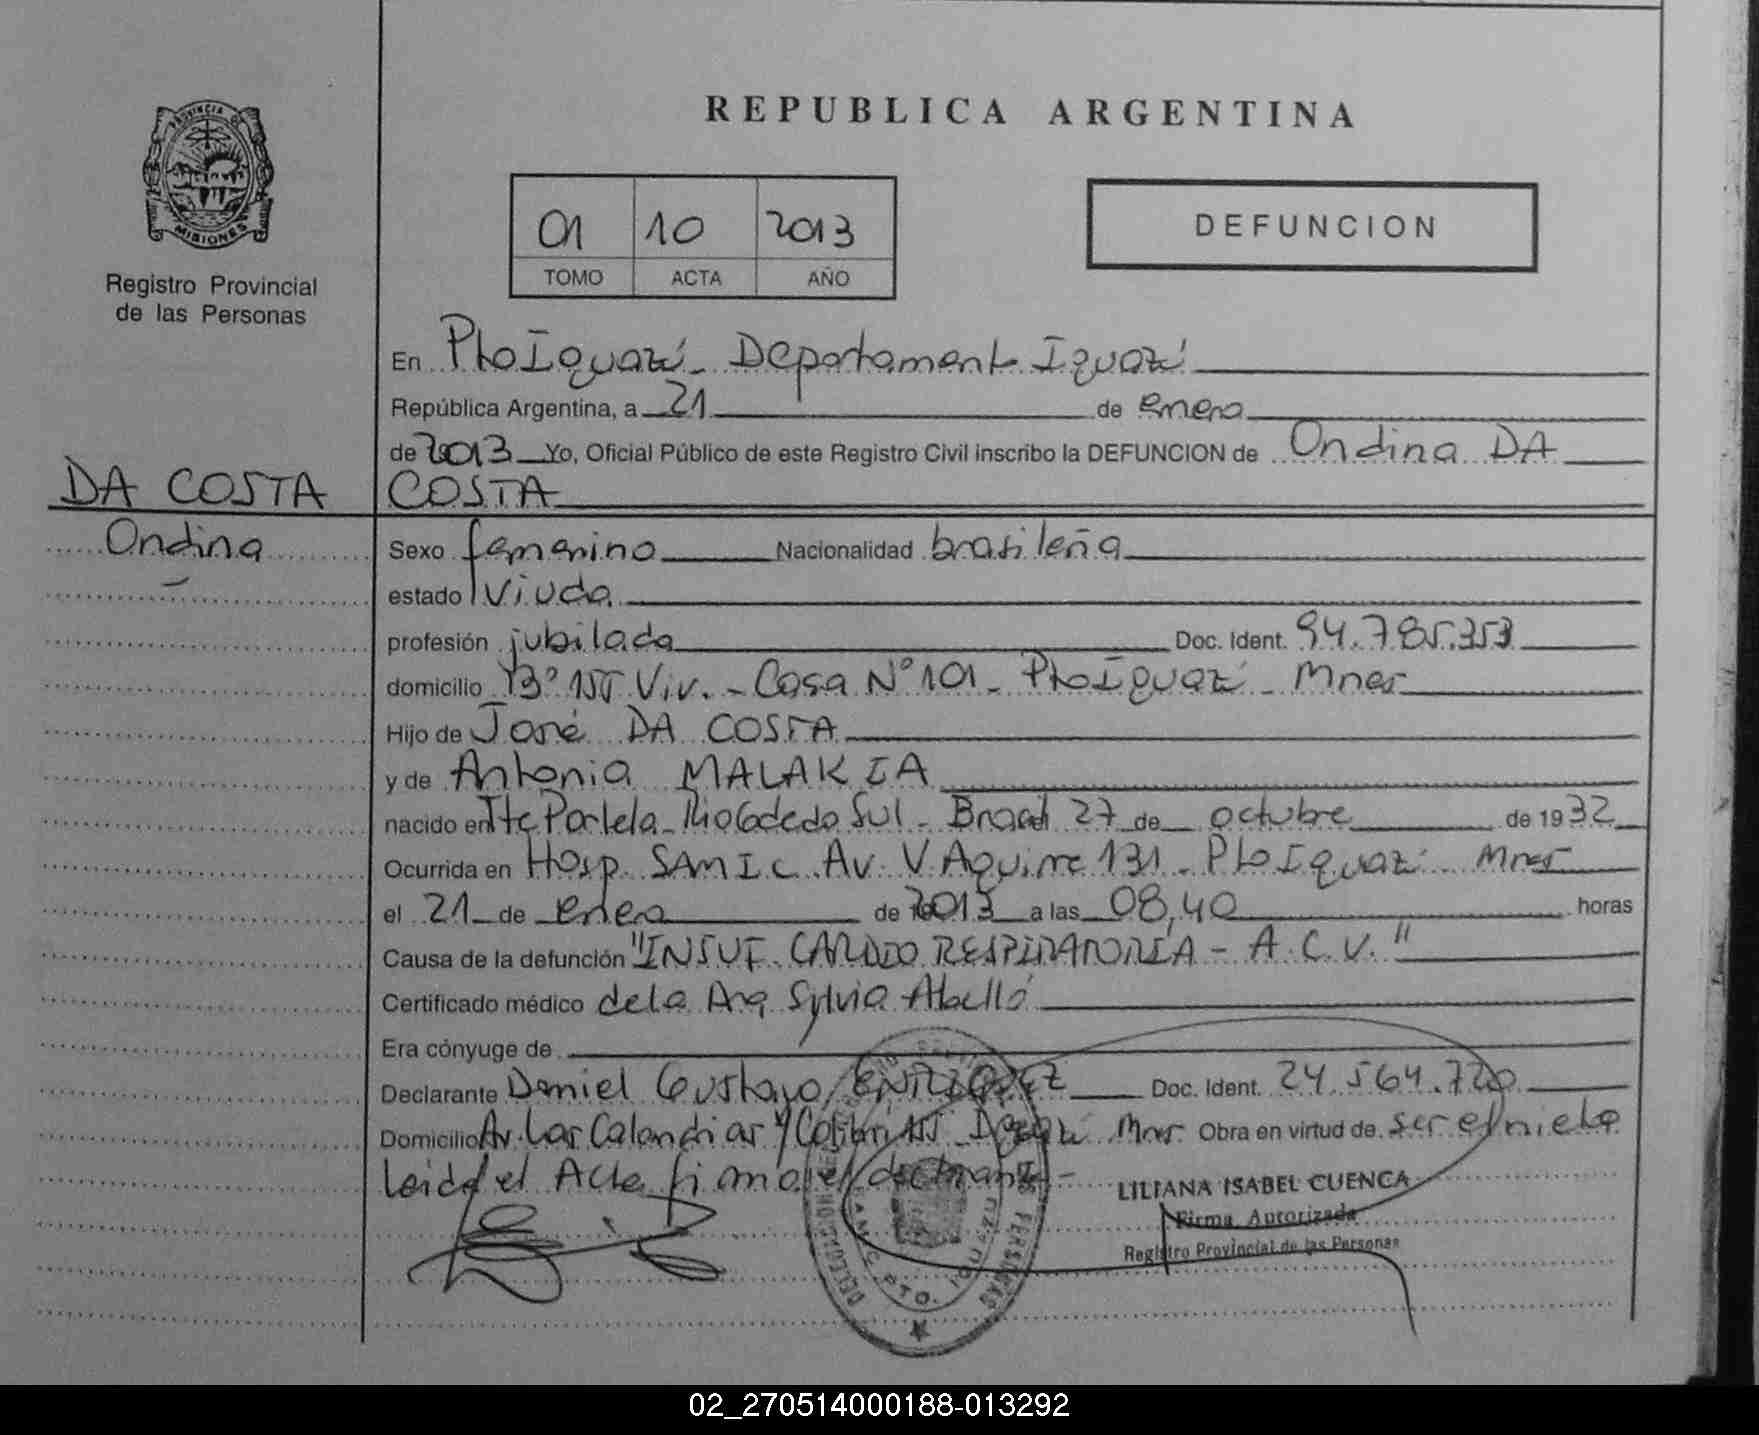 REPUBLICA ARGENTINA
PROVINCIA DE
MISIONES
Registro Provincial
de las Personas
01 10 2013
TOMO ACTA AÑO
DEFUNCION
En Pto Iguazú - Departamento Iguazú
República Argentina, a 21 de enero
de 2013 Yo, Oficial Público de este Registro Civil inscribo la DEFUNCION de Ondina DA
COSTA
DA COSTA
Ondina
Sexo femenino Nacionalidad brasileña
estado Viuda
profesión jubilada Doc. Ident. 94.785.353
domicilio Viv. - Casa N° 101 - Pto Iguazú - Mnes
Hijo de José DA COSTA
y de Antonia MALAKIA
nacido en Tte Portela - Rio Gde do Sul - Brasil 27 de octubre de 1932
Ocurrida en Hosp. SAMIC Av. V. Aguirre 131 - Pto Iguazú Mnes
el 21 de enero de 2013 a las 08,40 horas
Causa de la defunción "INSUF. CARDIO RESPIRATORIA - A.C.V."
Certificado médico de la Sylvia Abelló
Era cónyuge de
Declarante Daniel Gustavo ENRIQUEZ Doc. Ident. 24.564.720
Domicilio Av. Las Calandrias y Colibrí Mnes Obra en virtud de ser el nieto
Leida el Acta firma el declarante -
LILIANA ISABEL CUENCA
Firma Autorizada
Registro Provincial de las Personas
02_270514000188-013292